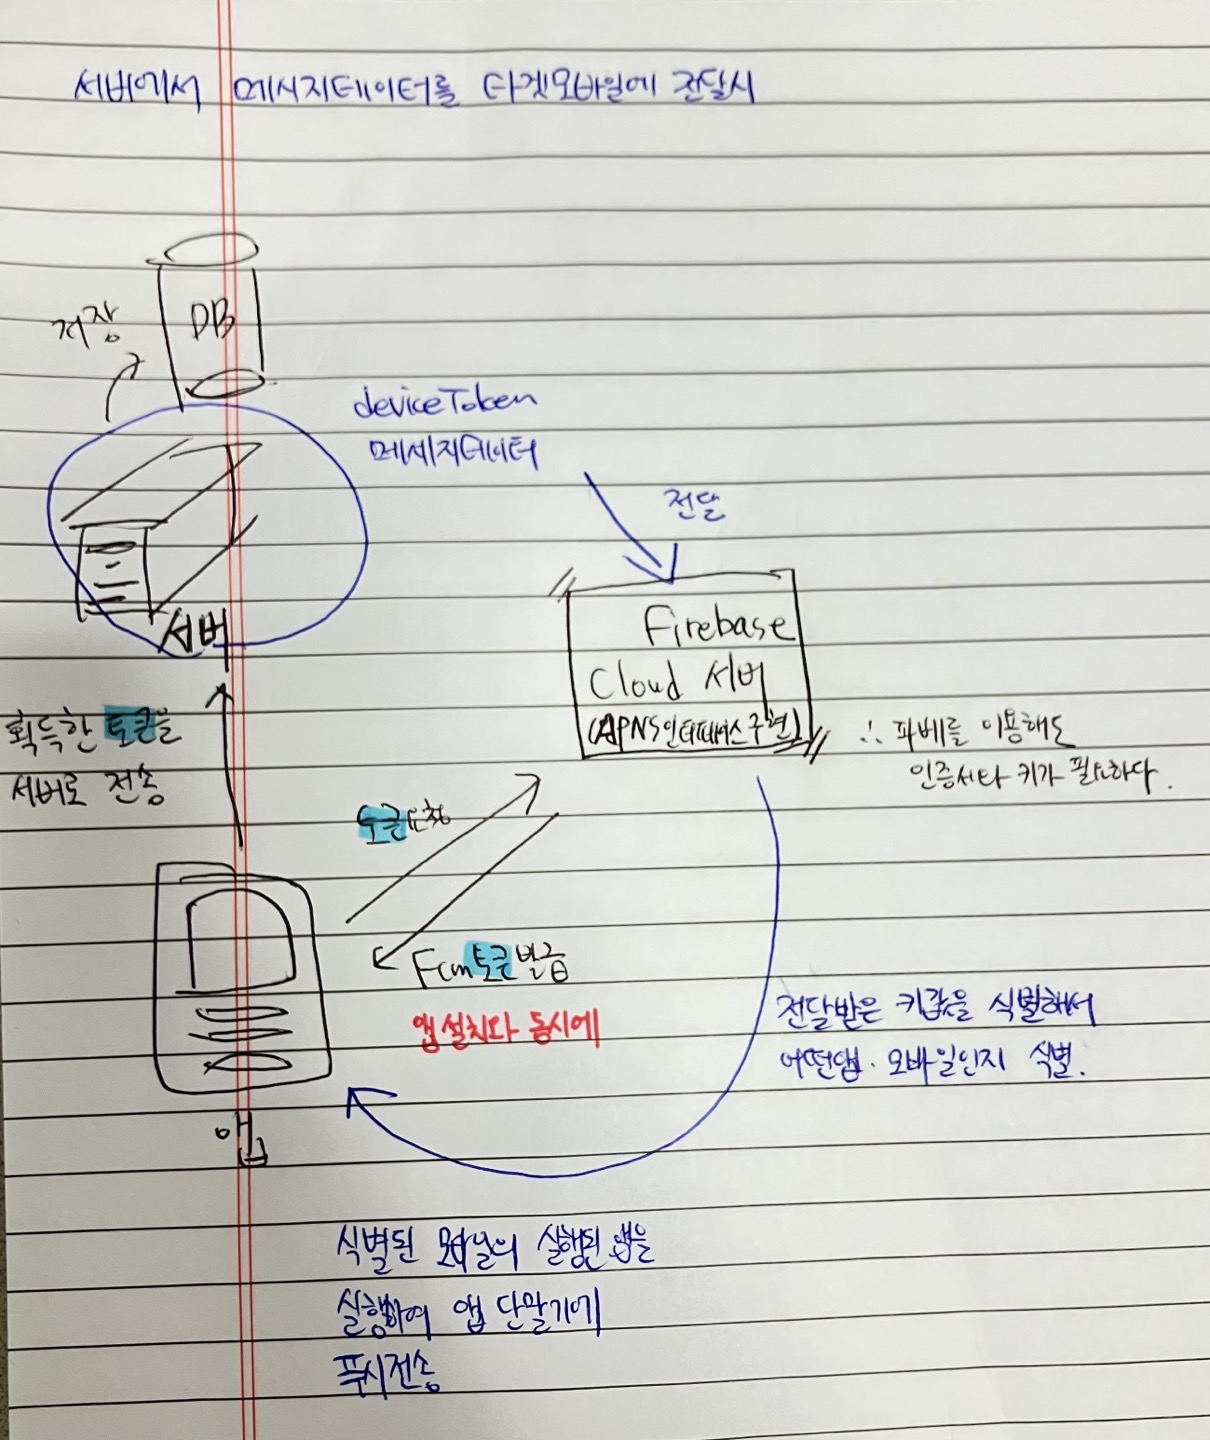 서버에서 메시지데이터를 타겟모바일에 전달시
DB
저장
deviceToken
메세지데이터
전달
서버
Firebase
Cloud 서버
(APNS인터페이스구현)
∴ 파베를 이용해도
인증서나 키가 필요하다.
획득한 토큰을
서버로 전송
토큰요청
Fcm토큰발급
앱설치와 동시에
앱
전달받은 키값을 식별해서
어떤앱·모바일인지 식별.
식별된 모바일의 실행된 앱을
실행하여 앱 단말기에
푸시전송